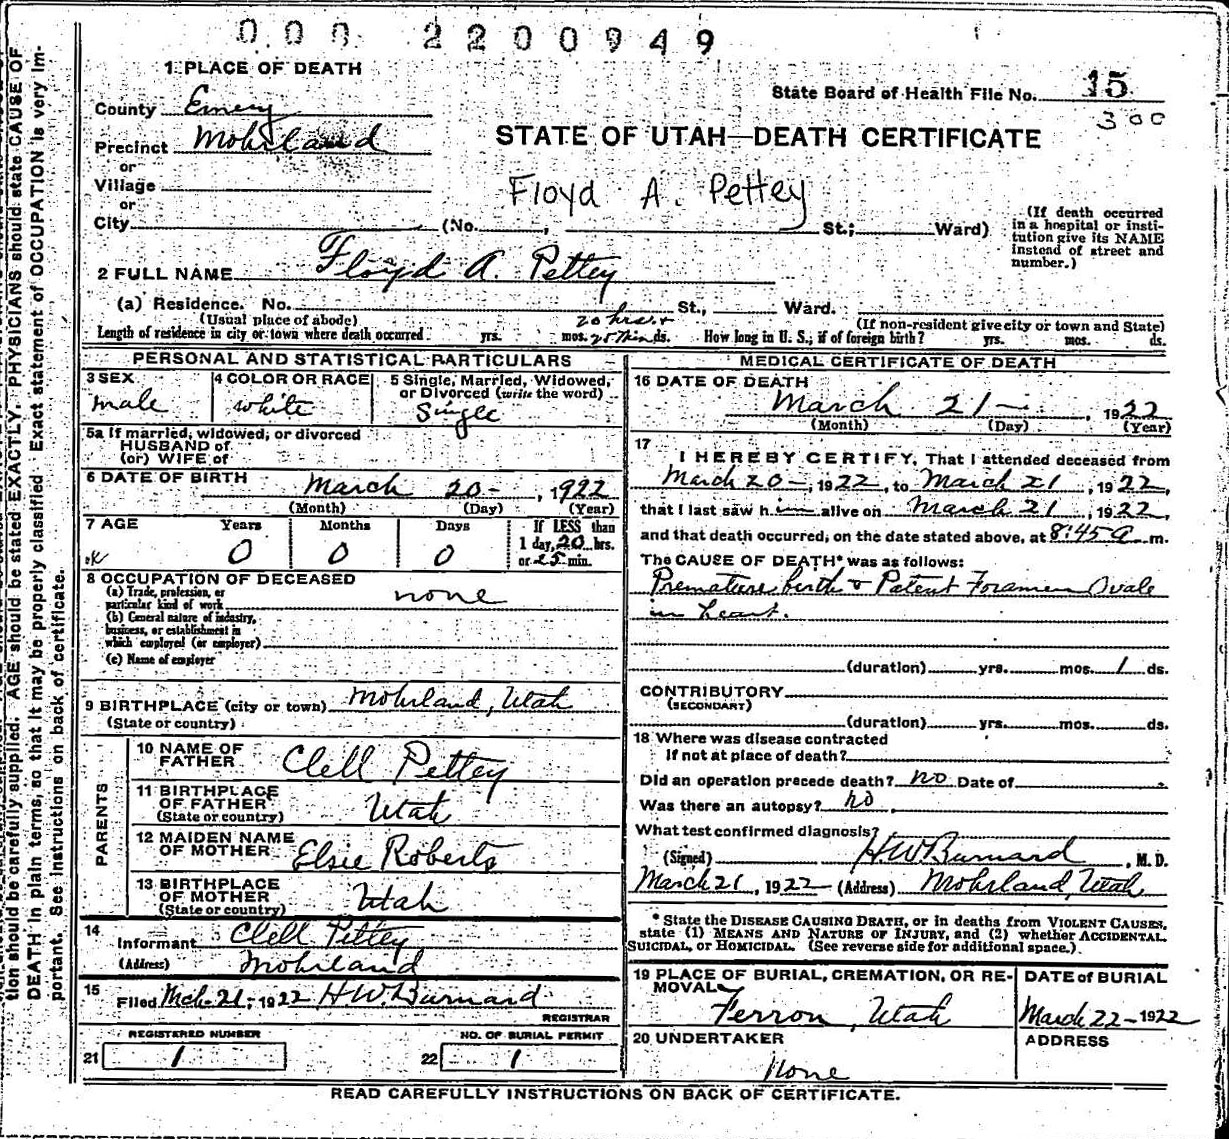 000 2200949
1 PLACE OF DEATH
County Emery
State Board of Health File No. 15
300
Precinct Mohrland
STATE OF UTAH—DEATH CERTIFICATE
or
Village
Floyd A. Pettey
or
City (No. , St.; Ward)
(If death occurred
in a hospital or insti-
tution give its NAME
instead of street and
number.)
2 FULL NAME Floyd A. Pettey
(a) Residence. No. St., Ward.
(Usual place of abode)
(If non-resident give city or town and State)
20 hrs. +
Length of residence in city or town where death occurred yrs. mos. 25 Min ds. How long in U. S.; if of foreign birth? yrs. mos. ds.
PERSONAL AND STATISTICAL PARTICULARS
3 SEX
male
4 COLOR OR RACE
white
5 Single, Married, Widowed,
or Divorced (write the word)
Single
5a If married, widowed, or divorced
HUSBAND of
(or) WIFE of
6 DATE OF BIRTH
March 20- , 1922
(Month) (Day) (Year)
7 AGE Years Months Days If LESS than
0 0 0 1 day, 20 hrs.
or 25 min.
8 OCCUPATION OF DECEASED
(a) Trade, profession, or
particular kind of work none
(b) General nature of industry,
business, or establishment in
which employed (or employer)
(c) Name of employer
9 BIRTHPLACE (city or town) Mohrland, Utah
(State or country)
PARENTS
10 NAME OF
FATHER Clell Pettey
11 BIRTHPLACE
OF FATHER Utah
(State or country)
12 MAIDEN NAME
OF MOTHER Elsie Roberts
13 BIRTHPLACE
OF MOTHER Utah
(State or country)
14
Informant Clell Pettey
(Address) Mohrland
15
Filed Mch-21, 1922 H W. Burnard
REGISTRAR
REGISTERED NUMBER
21 1
NO. OF BURIAL PERMIT
22 1
MEDICAL CERTIFICATE OF DEATH
16 DATE OF DEATH
March 21- , 1922
(Month) (Day) (Year)
17
I HEREBY CERTIFY, That I attended deceased from
March 20-, 1922, to March 21, 1922,
that I last saw him alive on March 21, 1922,
and that death occurred, on the date stated above, at 8:45 a m.
The CAUSE OF DEATH* was as follows:
Premature birth & Patent Foramen Ovale
in heart.
(duration) yrs. mos. 1 ds.
CONTRIBUTORY
(SECONDARY)
(duration) yrs. mos. ds.
18 Where was disease contracted
If not at place of death?
Did an operation precede death? no Date of
Was there an autopsy? no
What test confirmed diagnosis?
(Signed) H W Burnard, M. D.
March 21, 1922 (Address) Mohrland, Utah
* State the DISEASE CAUSING DEATH, or in deaths from VIOLENT CAUSES,
state (1) MEANS AND NATURE OF INJURY, and (2) whether ACCIDENTAL,
SUICIDAL, or HOMICIDAL. (See reverse side for additional space.)
19 PLACE OF BURIAL, CREMATION, OR RE-
MOVAL
Ferron, Utah
DATE of BURIAL
March 22-1922
20 UNDERTAKER
None
ADDRESS
READ CAREFULLY INSTRUCTIONS ON BACK OF CERTIFICATE.
tion should be carefully supplied. AGE should be stated EXACTLY. PHYSICIANS should state CAUSE OF
DEATH in plain terms, so that it may be properly classified. Exact statement of OCCUPATION is very im-
portant. See instructions on back of certificate.